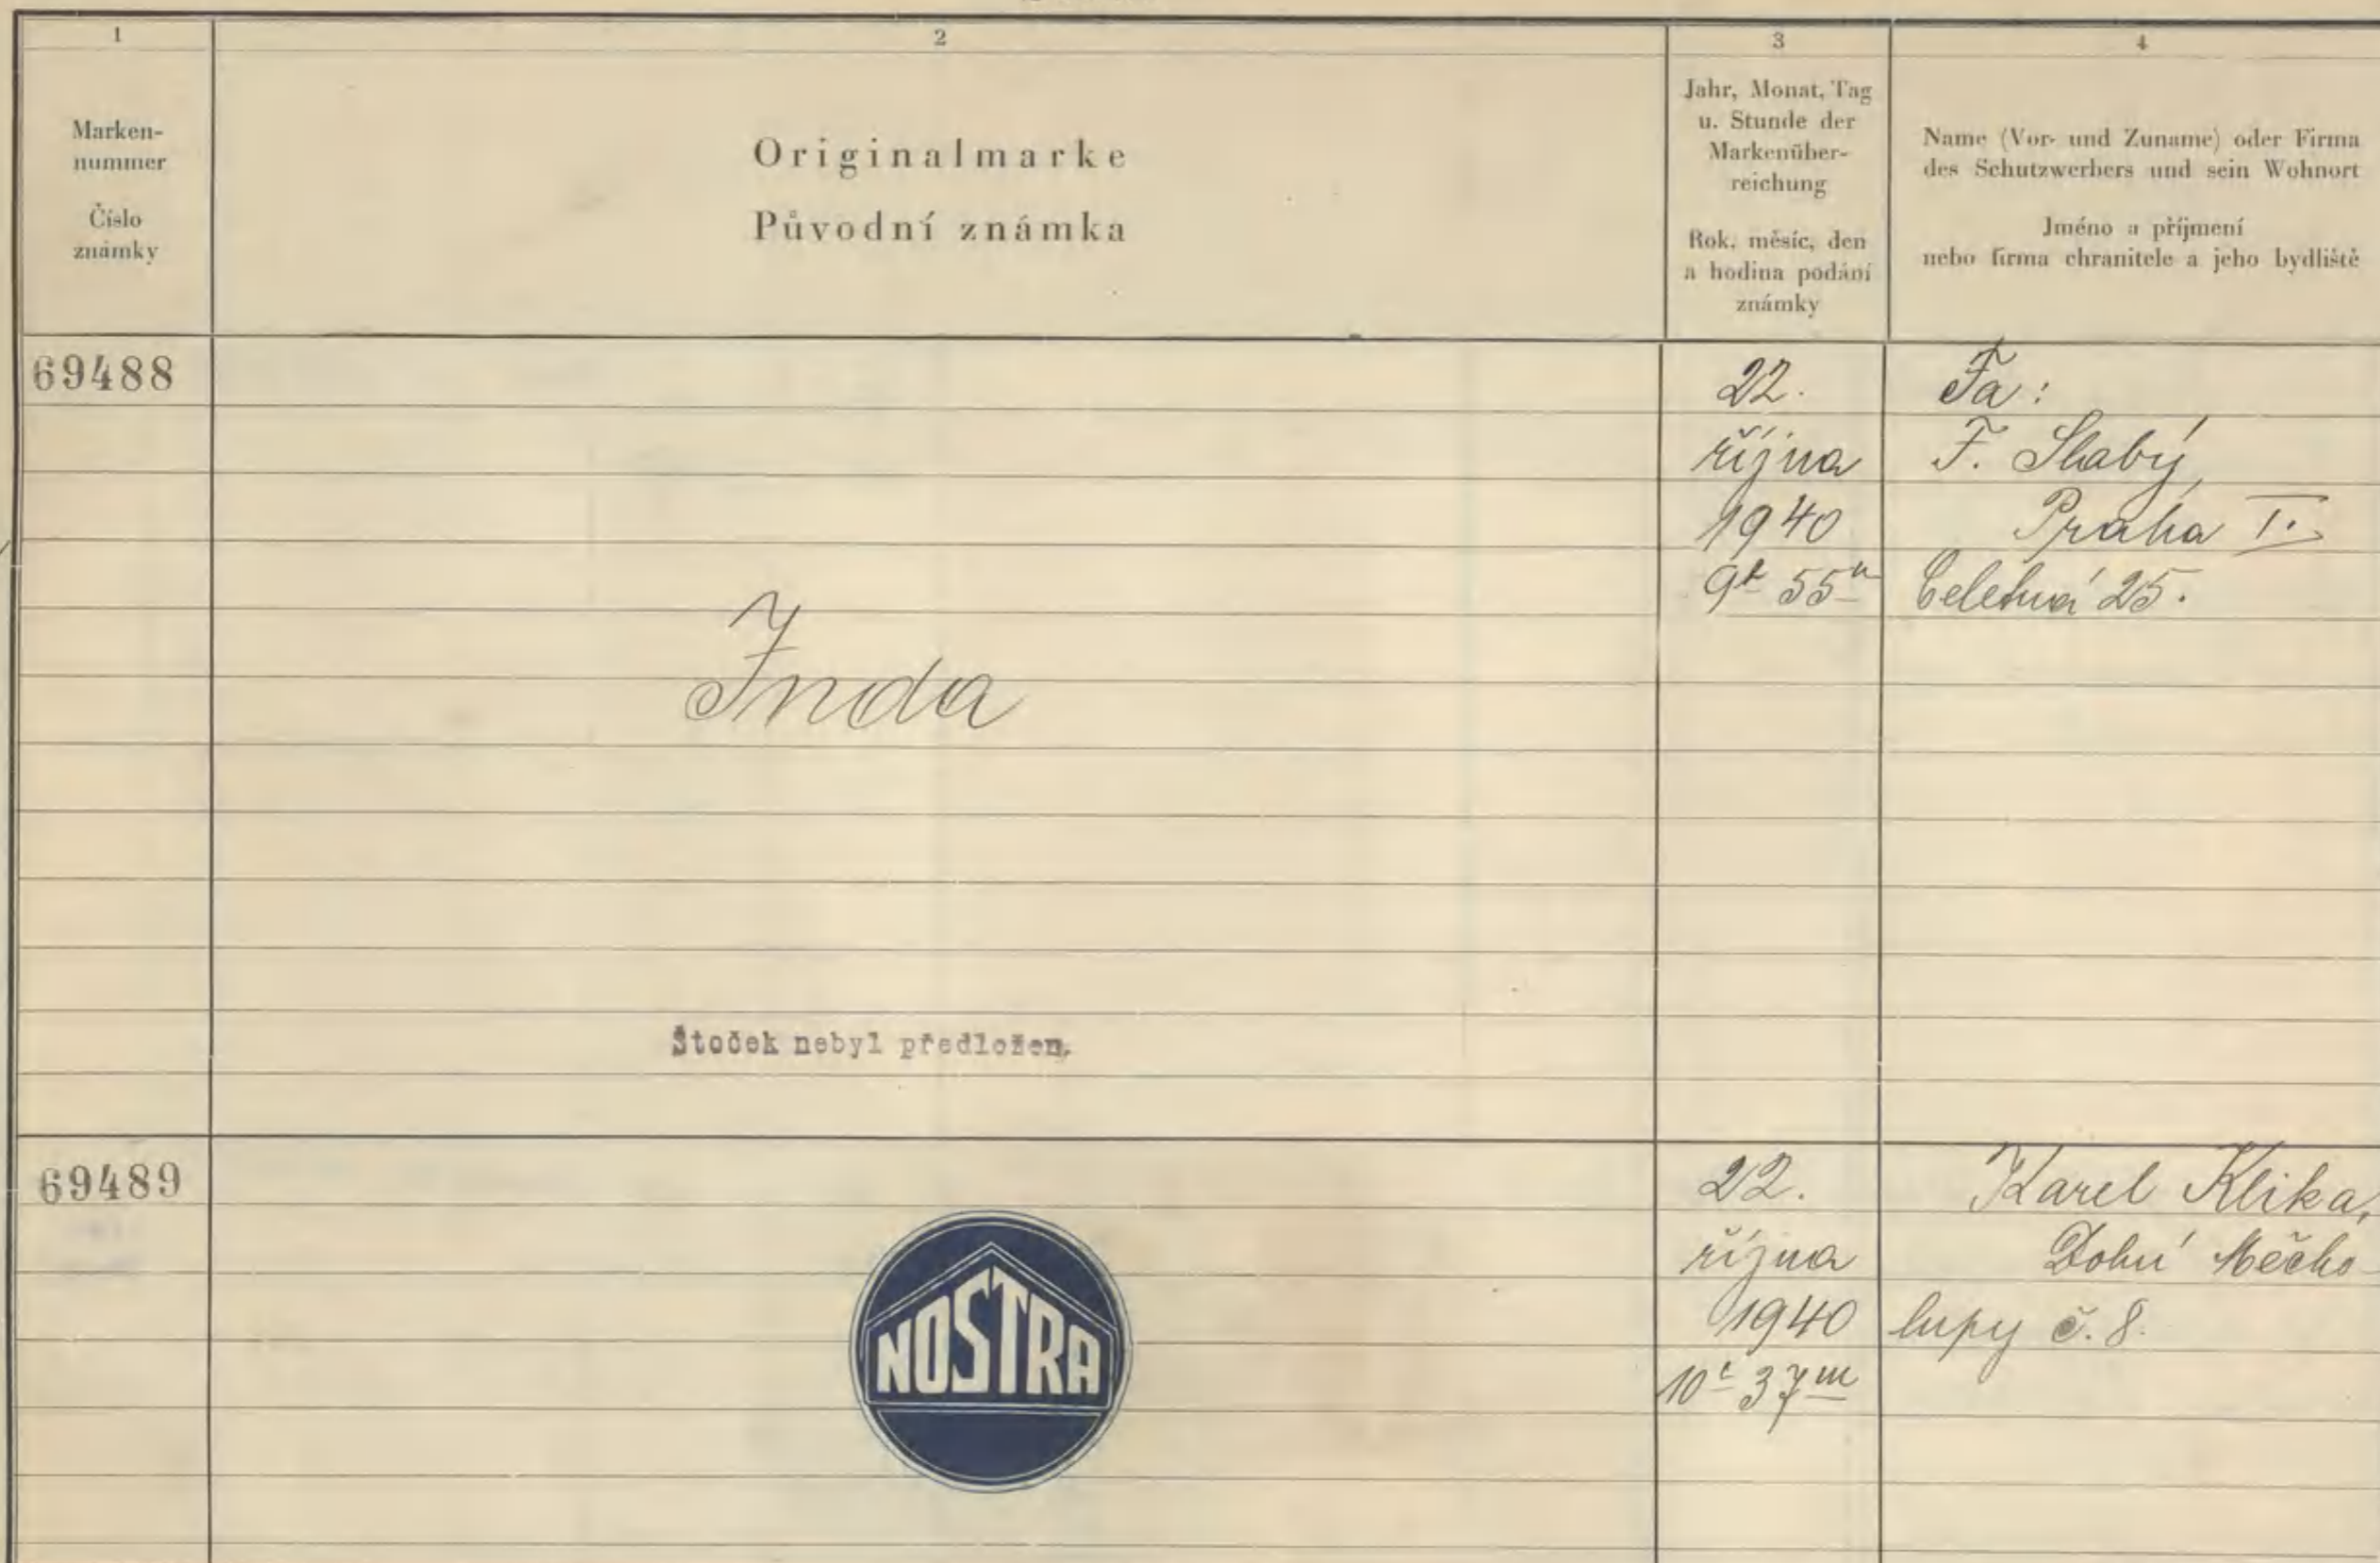 1
2
3
4
Marken-
nummer
Číslo
známky
Originalmarke
Původní známka
Jahr, Monat, Tag
u. Stunde der
Markenüber-
reichung
Rok, měsíc, den
a hodina podání
známky
Name (Vor- und Zuname) oder Firma
des Schutzwerbers und sein Wohnort
Jméno a příjmení
nebo firma chranitele a jeho bydliště
69488
22.
října
1940
9h 55m
Fa:
F. Slabý,
Praha I.
Celetná 25.
Inda
Štoček nebyl předložen.
69489
NOSTRA
22.
října
1940
10h 37m
Karel Klika,
Dolní Měcho-
lupy č. 8.